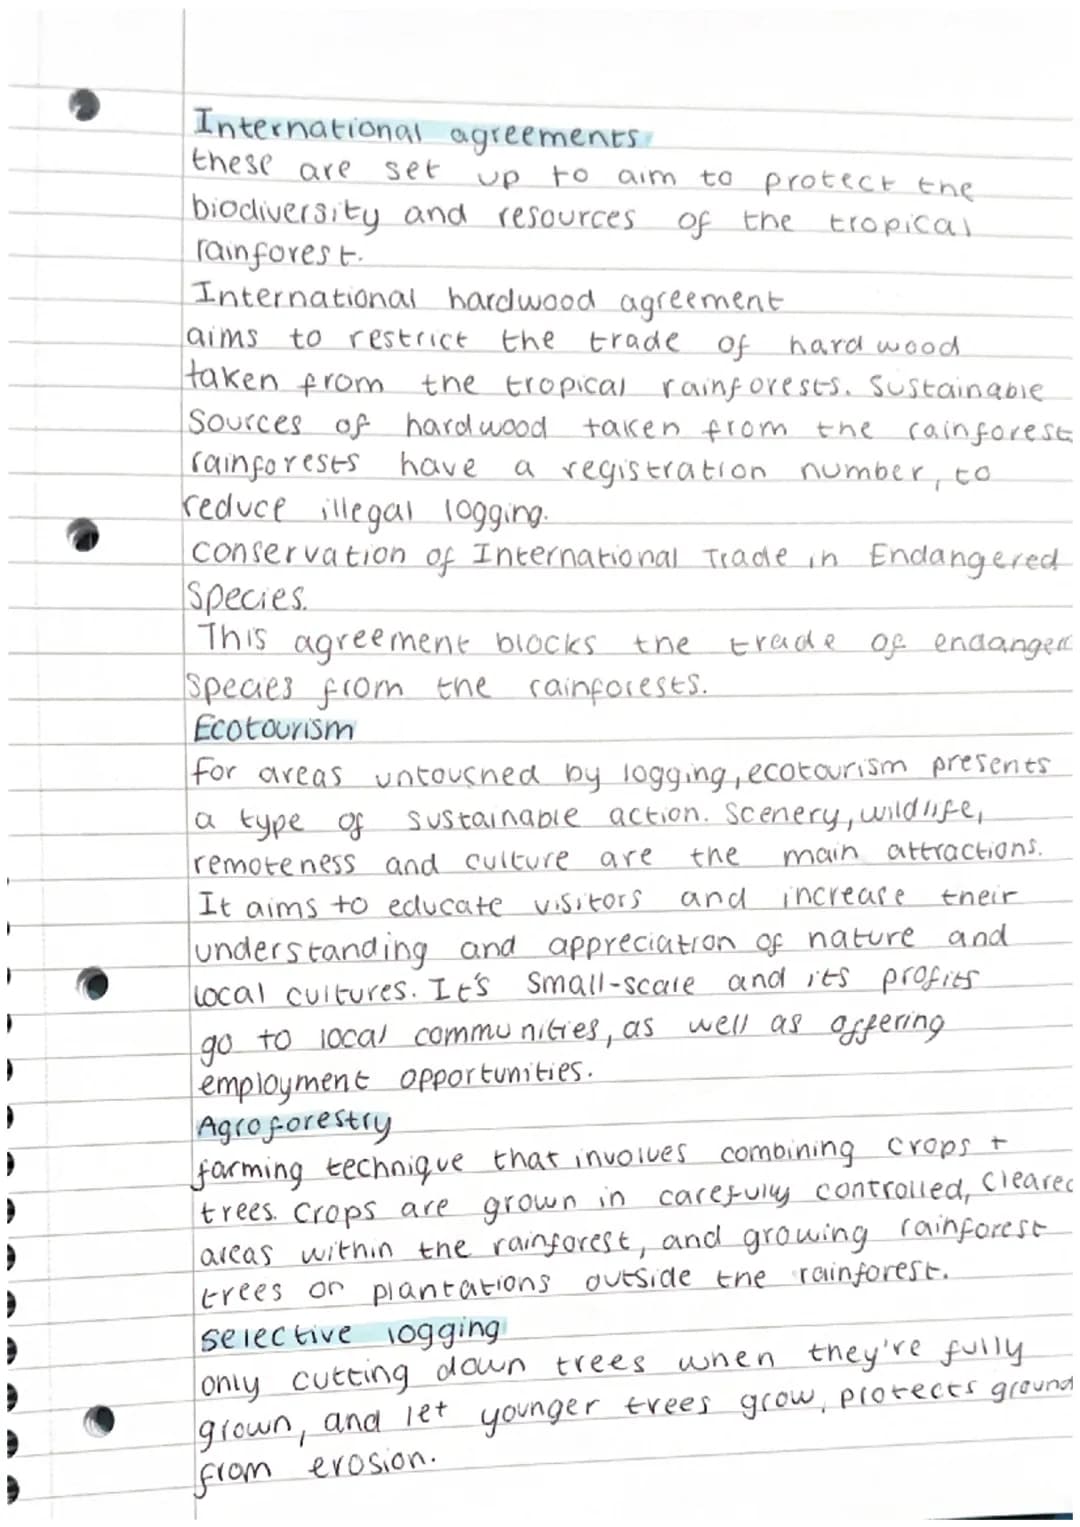 International agreements
these are set up to aim to protect the
biodiversity and resources of the tropical
rainforest.
International hardwood agreement
aims to restrict the trade of hard wood
taken from the tropical rainforests. Sustainable
Sources of hardwood taken from the rainforest
rainforests have a registration number, to
reduce illegal logging.
conservation of International Trade in Endangered
Species.
This agreement blocks the trade of endanger
Species from the rainforests.
Ecotourism
for areas untouched by logging, ecotourism presents
a type of sustainable action. Scenery, wildlife,
remoteness and culture are the main attractions.
It aims to educate visitors and increase their
understanding and appreciation of nature and
local cultures. It's small-scale and its profits
go to local communities, as well as offering
employment opportunities.
Agroforestry
farming technique that involves combining crops +
trees. Crops are grown in carefully controlled, cleared
areas within the rainforest, and growing rainforest
trees on plantations outside the rainforest.
Selective logging
only cutting down trees when they're fully
grown, and let younger trees grow, protects ground
from erosion.